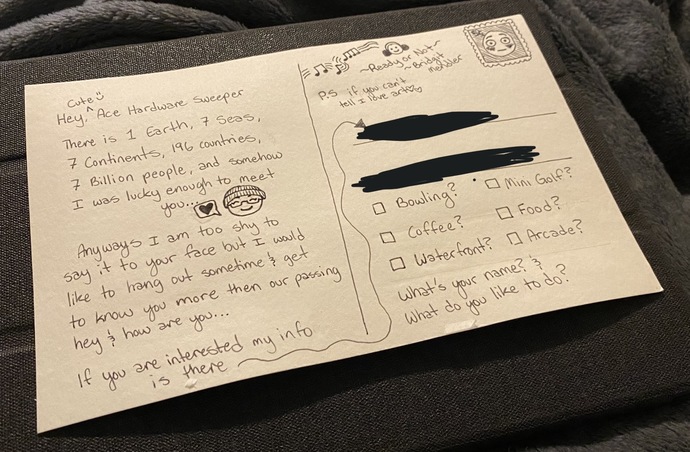 Cute
Hey, ^ Ace Hardware Sweeper
There is 1 Earth, 7 Seas,
7 Continents, 196 countries,
7 Billion people, and somehow
I was lucky enough to meet
you...
Anyways I am too shy to
say it to your face but I would
like to hang out sometime & get
to know you more then our passing
hey & how are you...
If you are interested my info
is there
~Ready or Not~
~Bridgit
Mendler
P.S if you can't
tell I love art
Bowling?
Mini Golf?
Coffee?
Food?
Waterfront?
Arcade?
What's your name? &
What do you like to do?